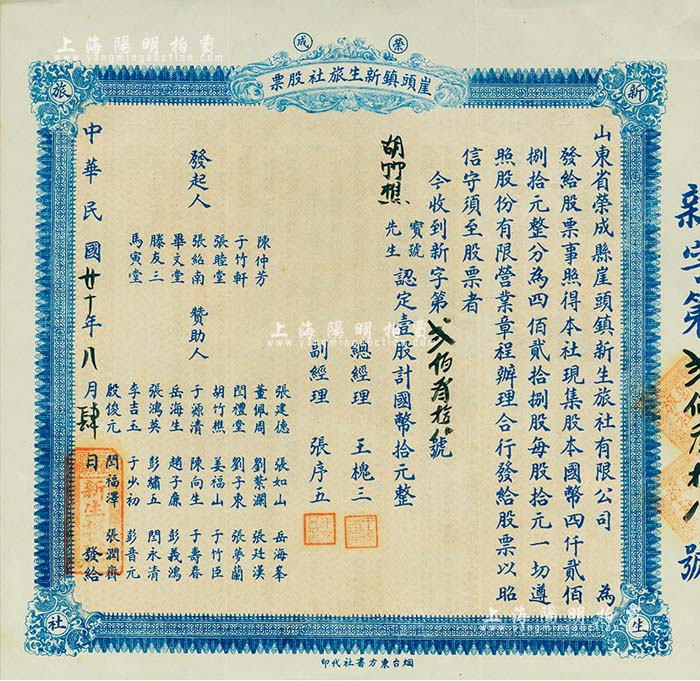 榮成
崖頭鎮新生旅社股票
新
旅
生
社
山東省榮成縣崖頭鎮新生旅社有限公司 為
發給股票事照得本社現集股本國幣四仟貳佰
捌拾元整分為四佰貳拾捌股每股拾元一切遵
照股份有限營業章程辦理合行發給股票以昭
信守須至股票者
今收到新字第貳佰 拾 號
胡竹樵 寶號 先生 認定壹股計國幣拾元整
總經理 王槐三
副經理 張序五
發起人
陳仲芳
于竹軒
張睦堂
張紿南
畢文堂
滕友三
馬寅堂
贊助人
張建德 張如山 岳海峯
董佩周 劉紫瀾 張廷漢
閃禮堂 劉子東 張夢蘭
胡竹樵 姜福山 于竹臣
于源清 陳向生 于壽春
岳海生 趙子廉 彭義鴻
張鴻英 彭繡五 閃永清
李吉玉 于少初 彭晉元
殷俊元 閃福澤 張潤齋
中華民國廿十年八月肆日發給
新字第
號
烟台東方書社代印
上海陽明拍賣
www.yangmingauction.com
上海陽明拍賣
www.yangmingauction.com
上海陽明拍賣
www.yangmingauction.com